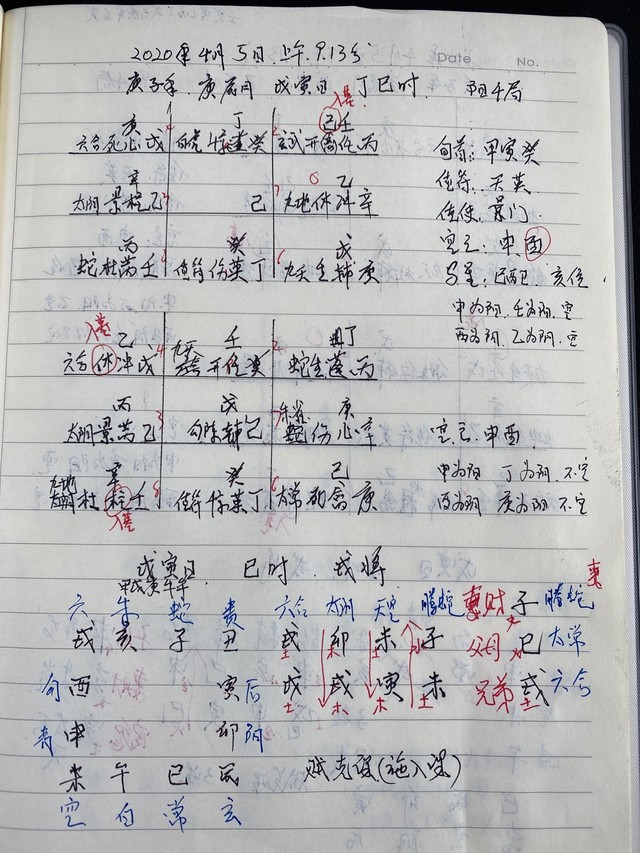 2020年4月5日上午9.13分
Date No.
庚子年 庚辰月 戊寅日 丁巳时 阳四局
入墓
庚 丁 己壬
六合死心戊 白虎惊芮癸 玄武开任丙
旬首:甲寅癸
辛 乙
太阴景柱乙 己 九地休冲辛
值符:天英
值使:景门
丙 癸 戊
蛇杜芮壬 值符伤英丁 九天生辅庚
空亡:申酉
马星:巳酉巳 亥位
申为阳,壬为阳,空
酉为阴,乙为阴,空
入墓
乙 壬 丁
六合休冲戊 九天开任癸 蛇生芮丙
丙 戊 庚
太阴景芮乙 勾陈辅己 朱雀伤心辛
空亡:申酉
辛 癸 己
九地杜柱壬 值符惊英丁 太常死禽庚
申为阳 丁为阴,不空
酉为阴 庚为阳 不空
入墓
戊寅日 巳时 戌将
六 朱 蛇 贵 六合 太阴 天空 腾蛇 妻财 子 腾蛇
戌 亥 子 丑 戌 卯 未 子 父母 巳 太常
勾 酉 寅 后 戊 戌 寅 未 兄弟 戌 六合
青 申 卯 阴
未 午 巳 辰 贼克课(
空 白 常 玄